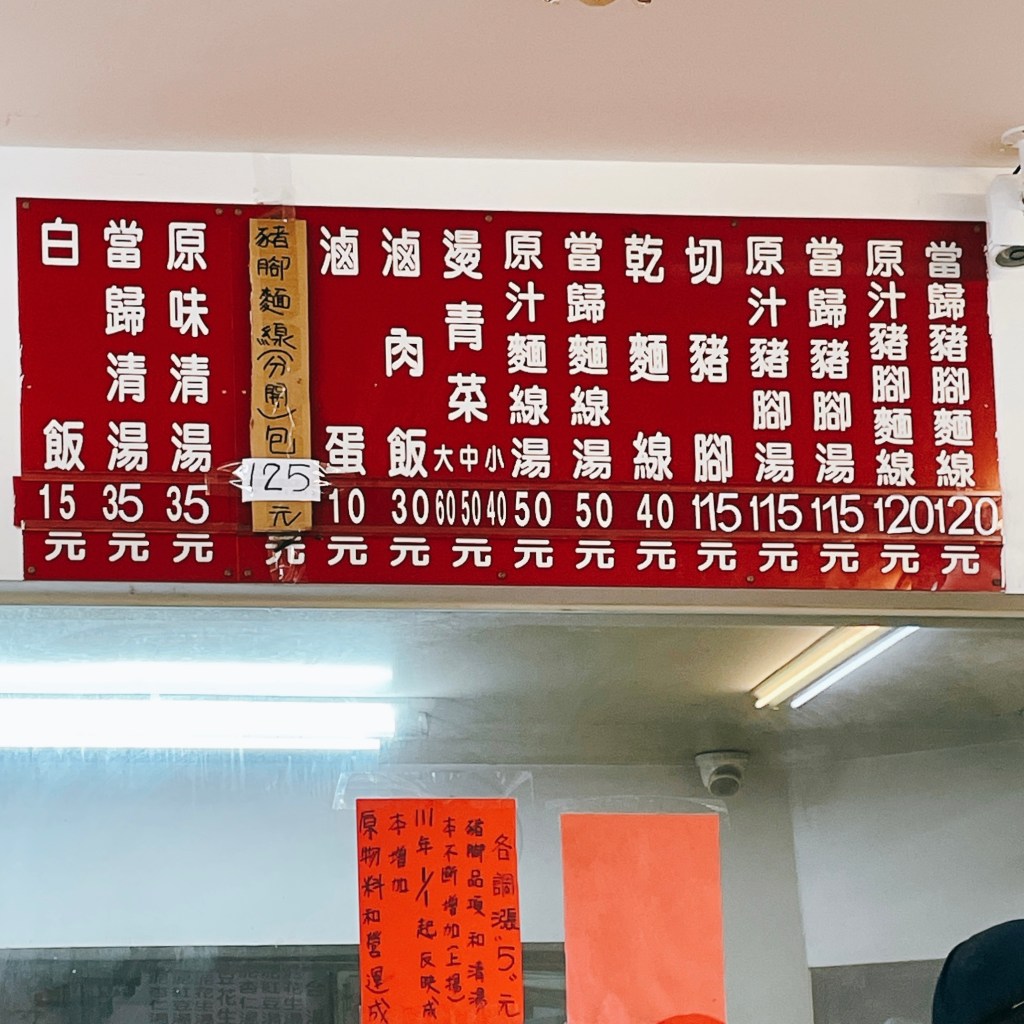 當歸豬腳麵線120元
原汁豬腳麵線120元
當歸豬腳湯115元
原汁豬腳湯115元
切豬腳115元
乾麵線40元
當歸麵線湯50元
原汁麵線湯50元
燙青菜大中小60 50 40元
滷肉飯30元
滷蛋10元
豬腳麵線(分開)包125元
元
原味清湯35元
當歸清湯35元
白飯15元
原物料和營運成
本增加
111年1/1起反映成
本不斷增加(上揚)
豬腳品項和清湯
各調漲"5"元